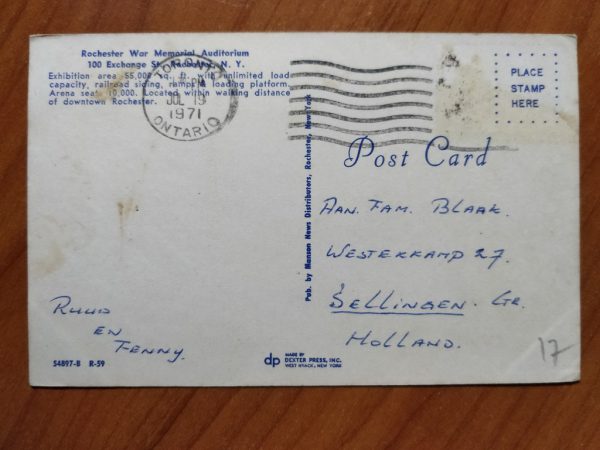 Rochester War Memorial Auditorium
100 Exchange St., Rochester, N. Y.
Exhibition area 55,000 sq. ft. with unlimited load
capacity, railroad siding, ramps & loading platform.
Arena seats 10,000. Located within walking distance
of downtown Rochester.
TORONTO
PM
JUL 19
1971
ONTARIO
PLACE
STAMP
HERE
Post Card
Pub. by Manson News Distributors, Rochester, New York
AAN. FAM. BLAAK.
WESTERKAMP 27.
SELLINGEN. GR.
HOLLAND.
RUUD
EN
FENNY.
17
dp
MADE BY
DEXTER PRESS, INC.
WEST NYACK, NEW YORK
54897-B R-59